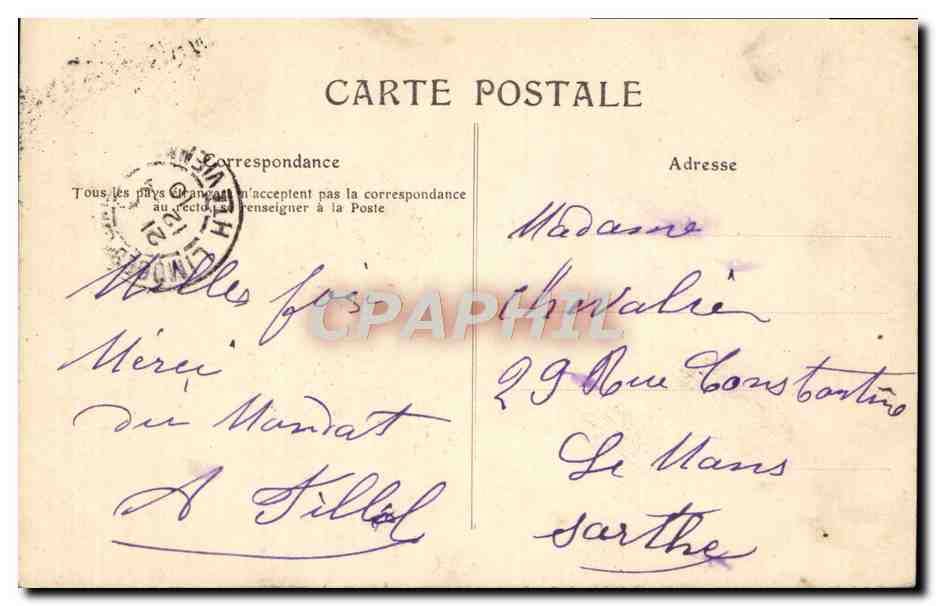 CARTE POSTALE
Correspondance
Tous les pays étrangers n'acceptent pas la correspondance
au recto se renseigner à la Poste
Adresse
LIMOGES
Hte VIENNE
CPAPHIL
Milles fois
Mérci
du Mandat
A Fillol
Madame
Chevalier
29 Rue Constantine
Le Mans
Sarthe